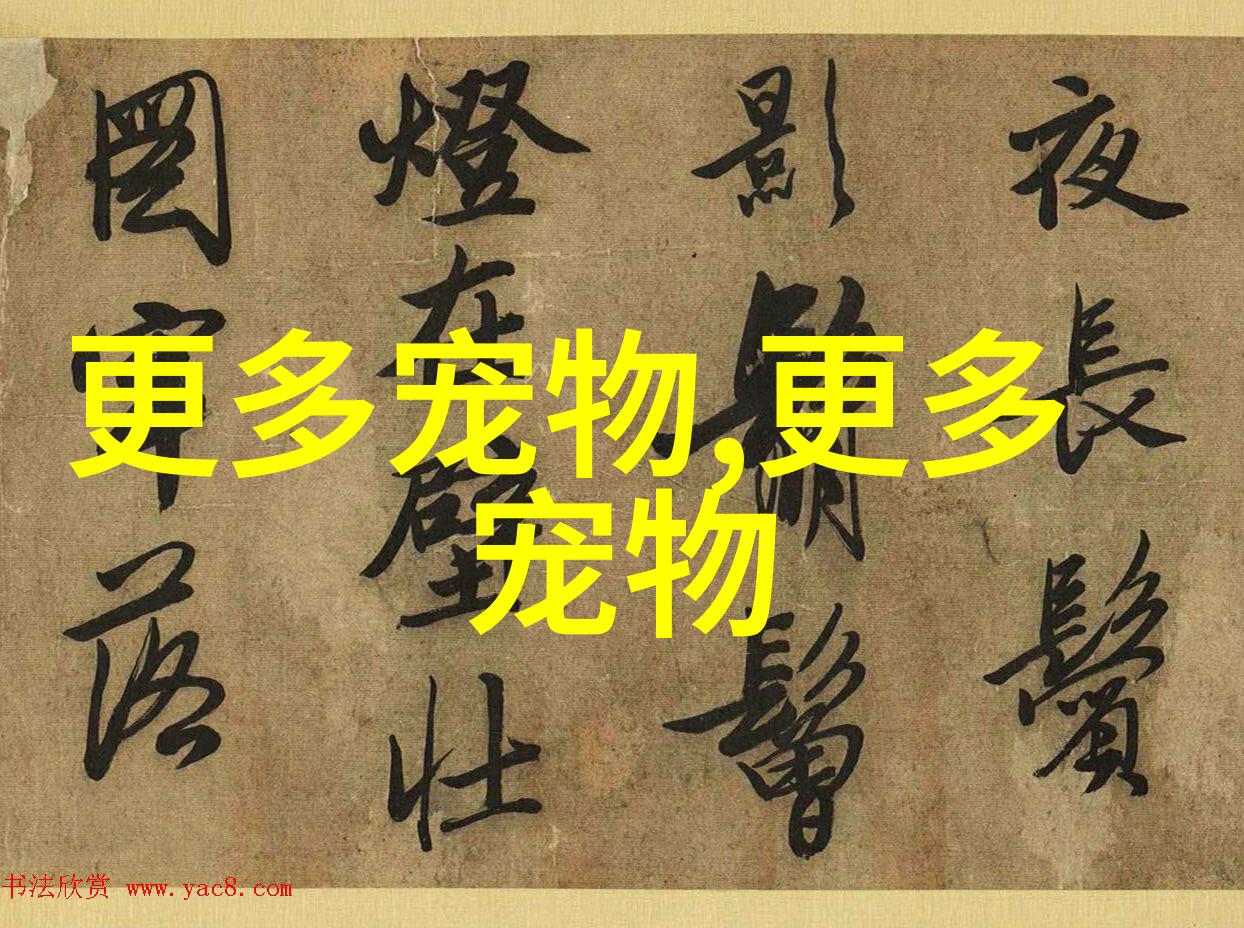 更多宠物,更多
宠物
夜長鬢
影髯髫
燈在壁壯
圖牢落
书法欣赏 www.yac8.com